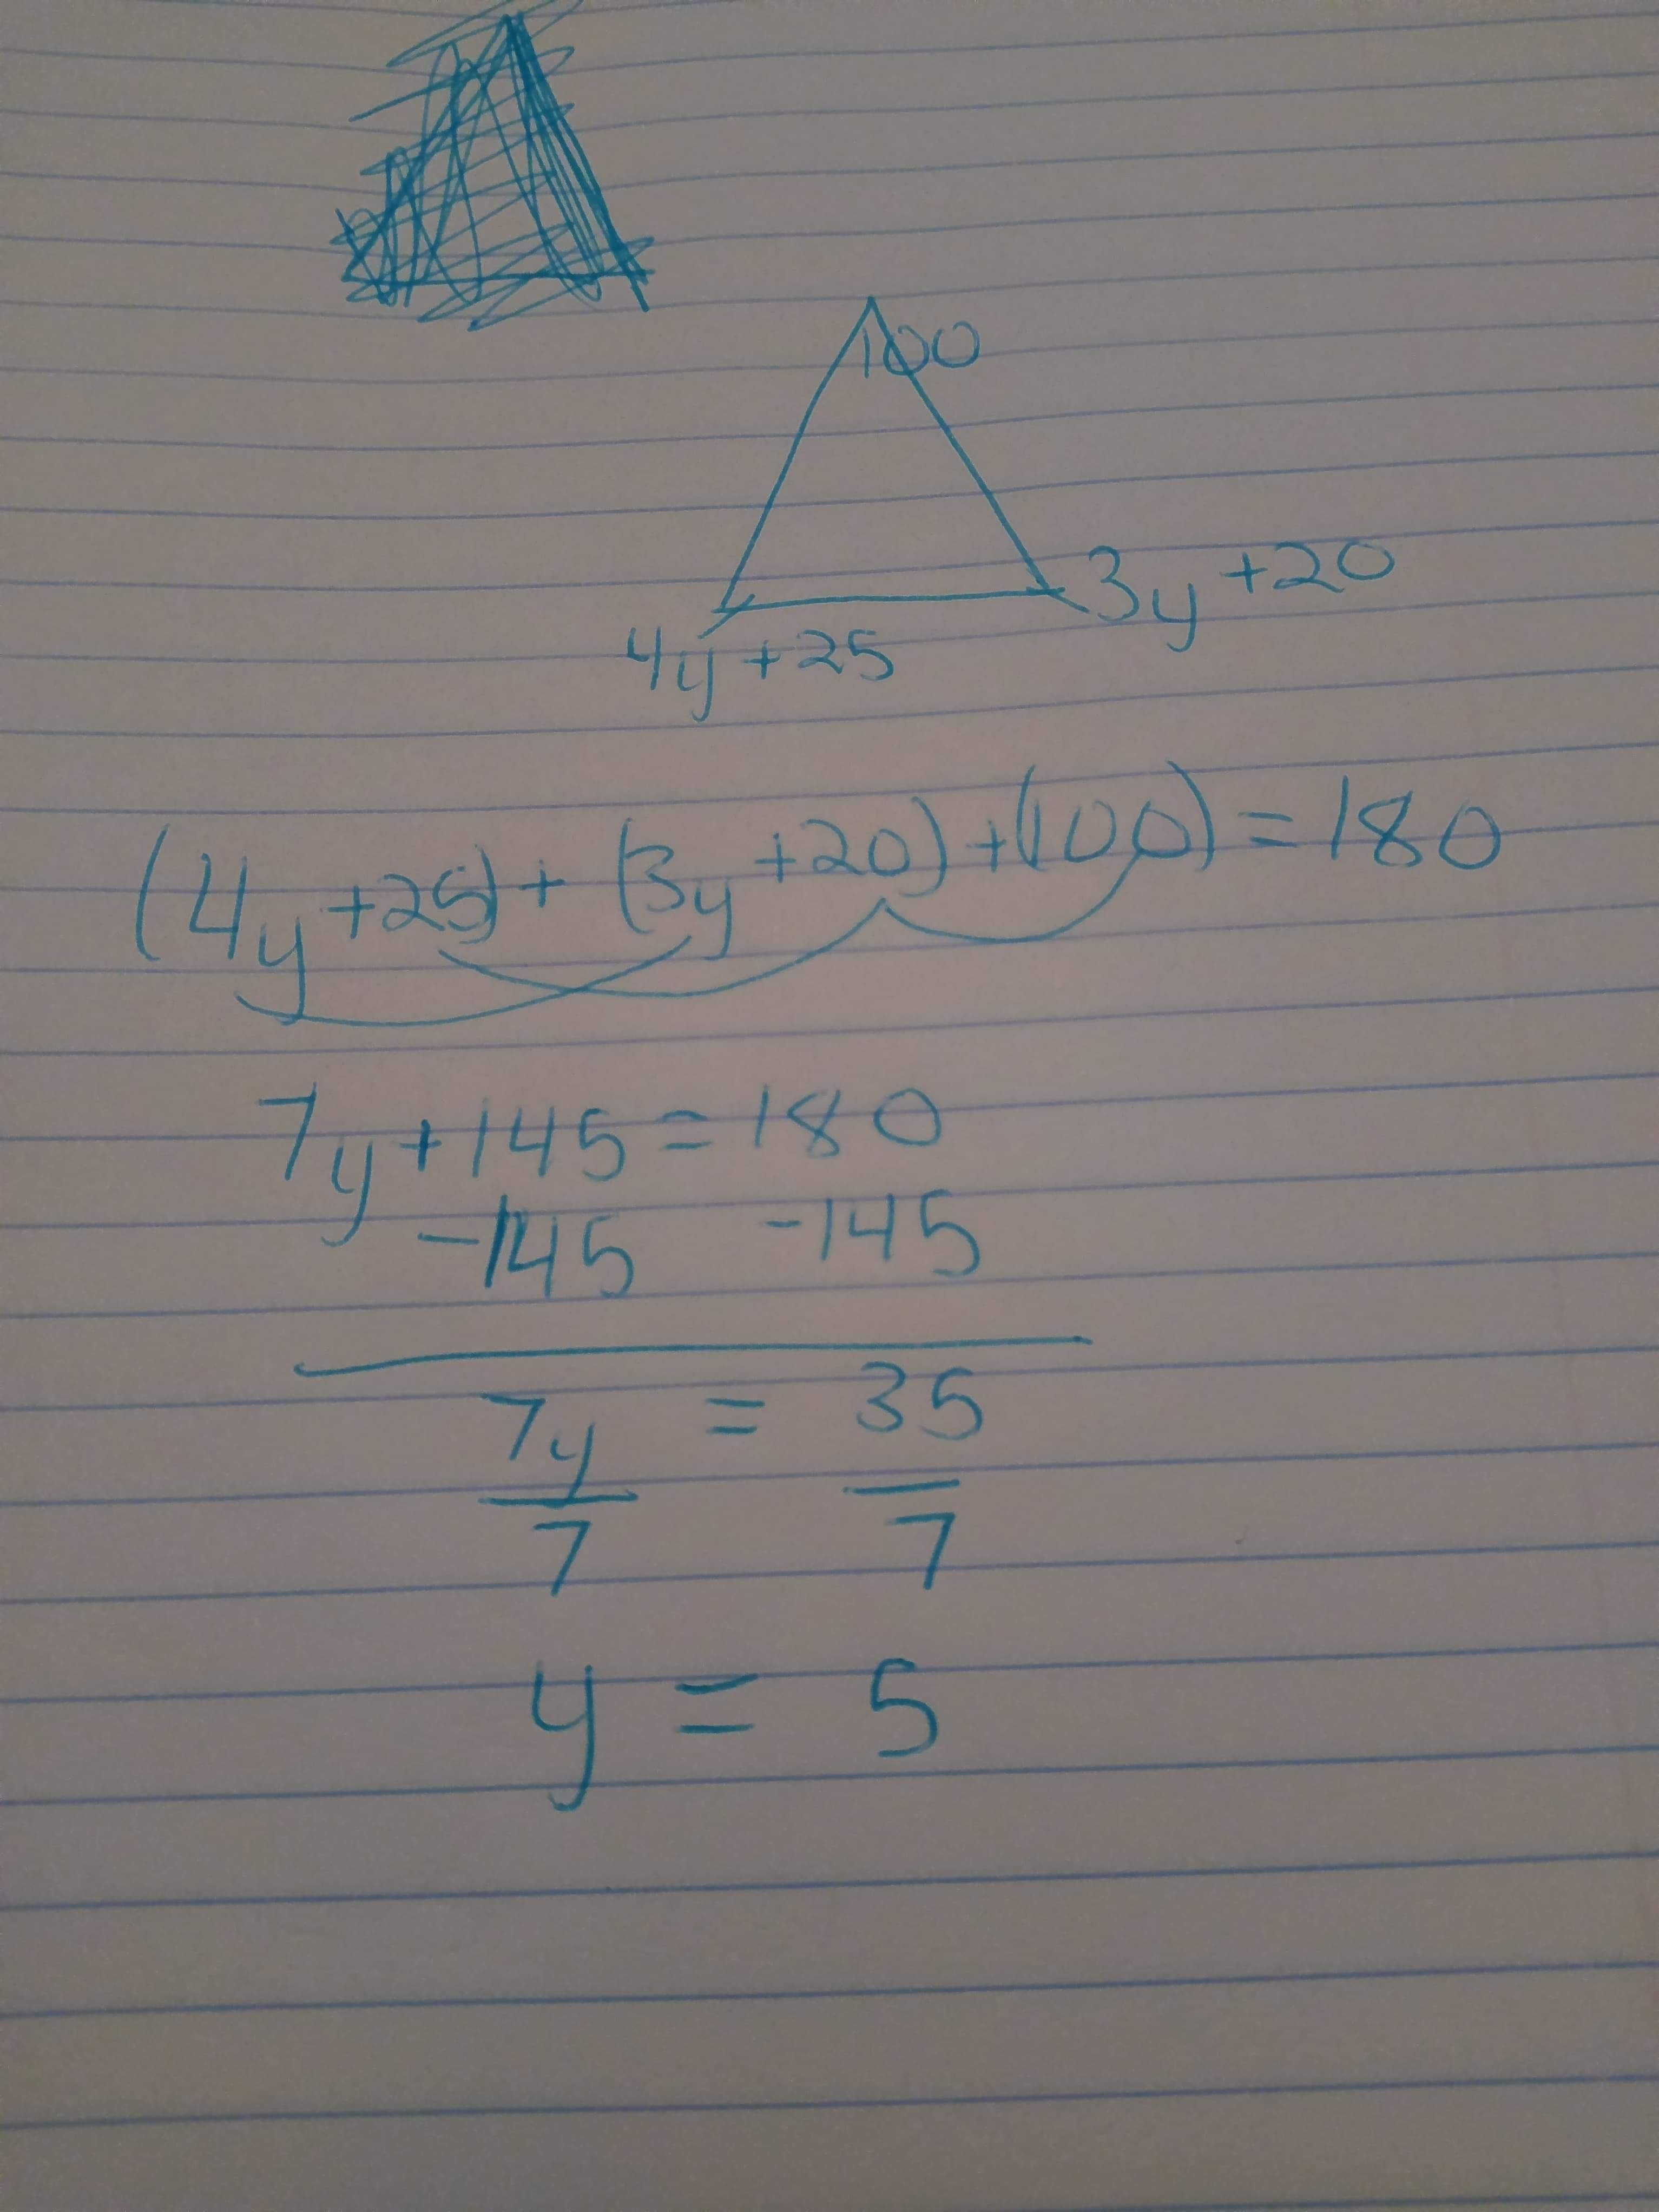 100
3y +20
4y + 25
(4y +25) + (3y +20) + (100) = 180
7y + 145 = 180
-145 -145
7y = 35
7 7
y = 5